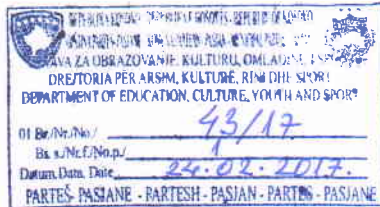 REPUBLIC OF KOSOVO
ZA OBRAZOVANJE, KULTURU, OMLADINE I
DREJTORIA PËR ARSIM, KULTURË, RINI DHE SPORT
DEPARTMENT OF EDUCATION, CULTURE, YOUTH AND SPORT
01 Br/Nr./No/ 43/17
Br. s./Nr.f./No.p./ 1
Datum, Data, Date 24.02.2017.
PARTEŠ- PASJANE - PARTESH - PASJAN - PARTES - PASJANE